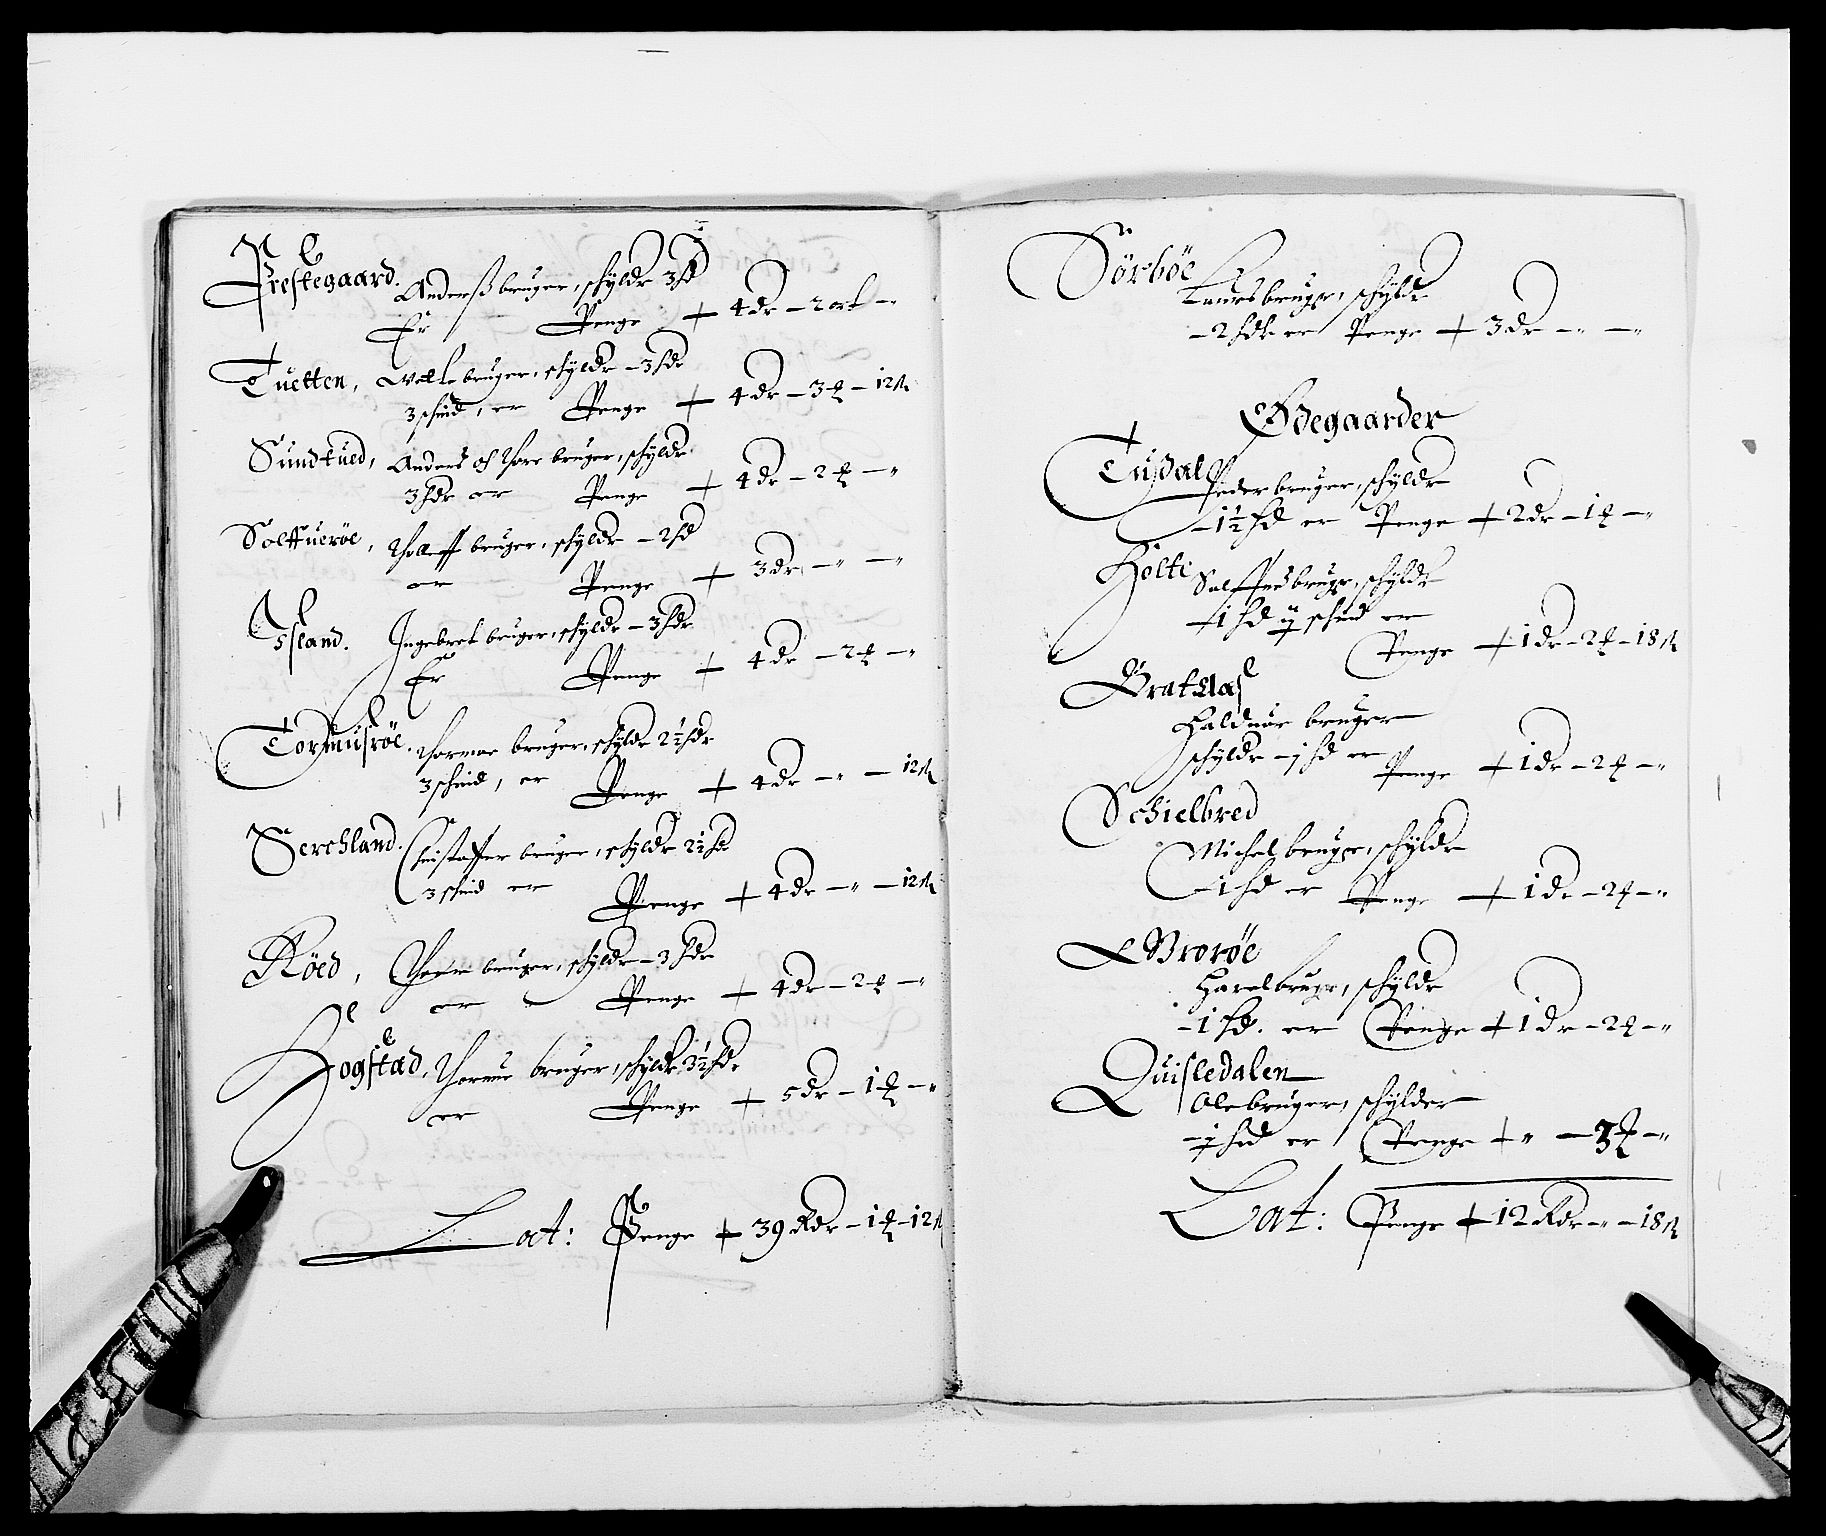 Prestegaard. Anders bruger, schylder 3 hd
Er Penge + 4 dr – 2 ort – "
Tuetten, bruger, schylder – 3 hdr
3 schind, er Penge + 4 dr – 3 ort – 12 sk
Sundtued, Anders och Thore bruger, schylder
3 hdr er Penge + 4 dr – 2 ort – "
Solffueröe, Rolff bruger, schylder – 2 hd
er Penge + 3 dr – " – "
Ijsland. Ingebret bruger, schylder – 3 hdr
Er Penge + 4 dr – 2 ort – "
Tormusröe. Thormoe bruger, schylder 2½ hdr
3 schind, er Penge + 4 dr – " – 12 sk
Serchland. Christoffer bruger, schylder 2½ hd
3 schind er Penge + 4 dr – " – 12 sk
Röed, bruger, schylder – 3 hdr
er Penge + 4 dr – 2 ort – "
Hogstad, Thormoe bruger, schylder 3½ hdr
er Penge + 5 dr – 1 ort – "
Lat: Penge + 39 Rdr – 1 ort – 12 sk
Sörböe
Laurs bruger, schylder
– 2 hdr er Penge + 3 dr – " – "
Ödegaarder
Tusdal
Peder bruger, schylder
– 1½ hd er Penge + 2 dr – 1 ort – "
Holte
bruger, schylder
– 1 hd ij schind er
Penge + 1 dr – 2 ort – 18 sk
Bratnas
Halduor bruger
schylder – j hd er Penge + 1 dr – 2 ort – "
Schielbred
Michel bruger, schylder
– 1 hd er Penge + 1 dr – 2 ort – "
Broröe
Harel bruger, schylder
– 1 hd. er Penge + 1 dr – 2 ort – "
Quisledalen
Ole bruger, schylder
– ½ hd er Penge + " – 3 ort – "
Lat: Penge + 12 Rdr – " – 18 sk